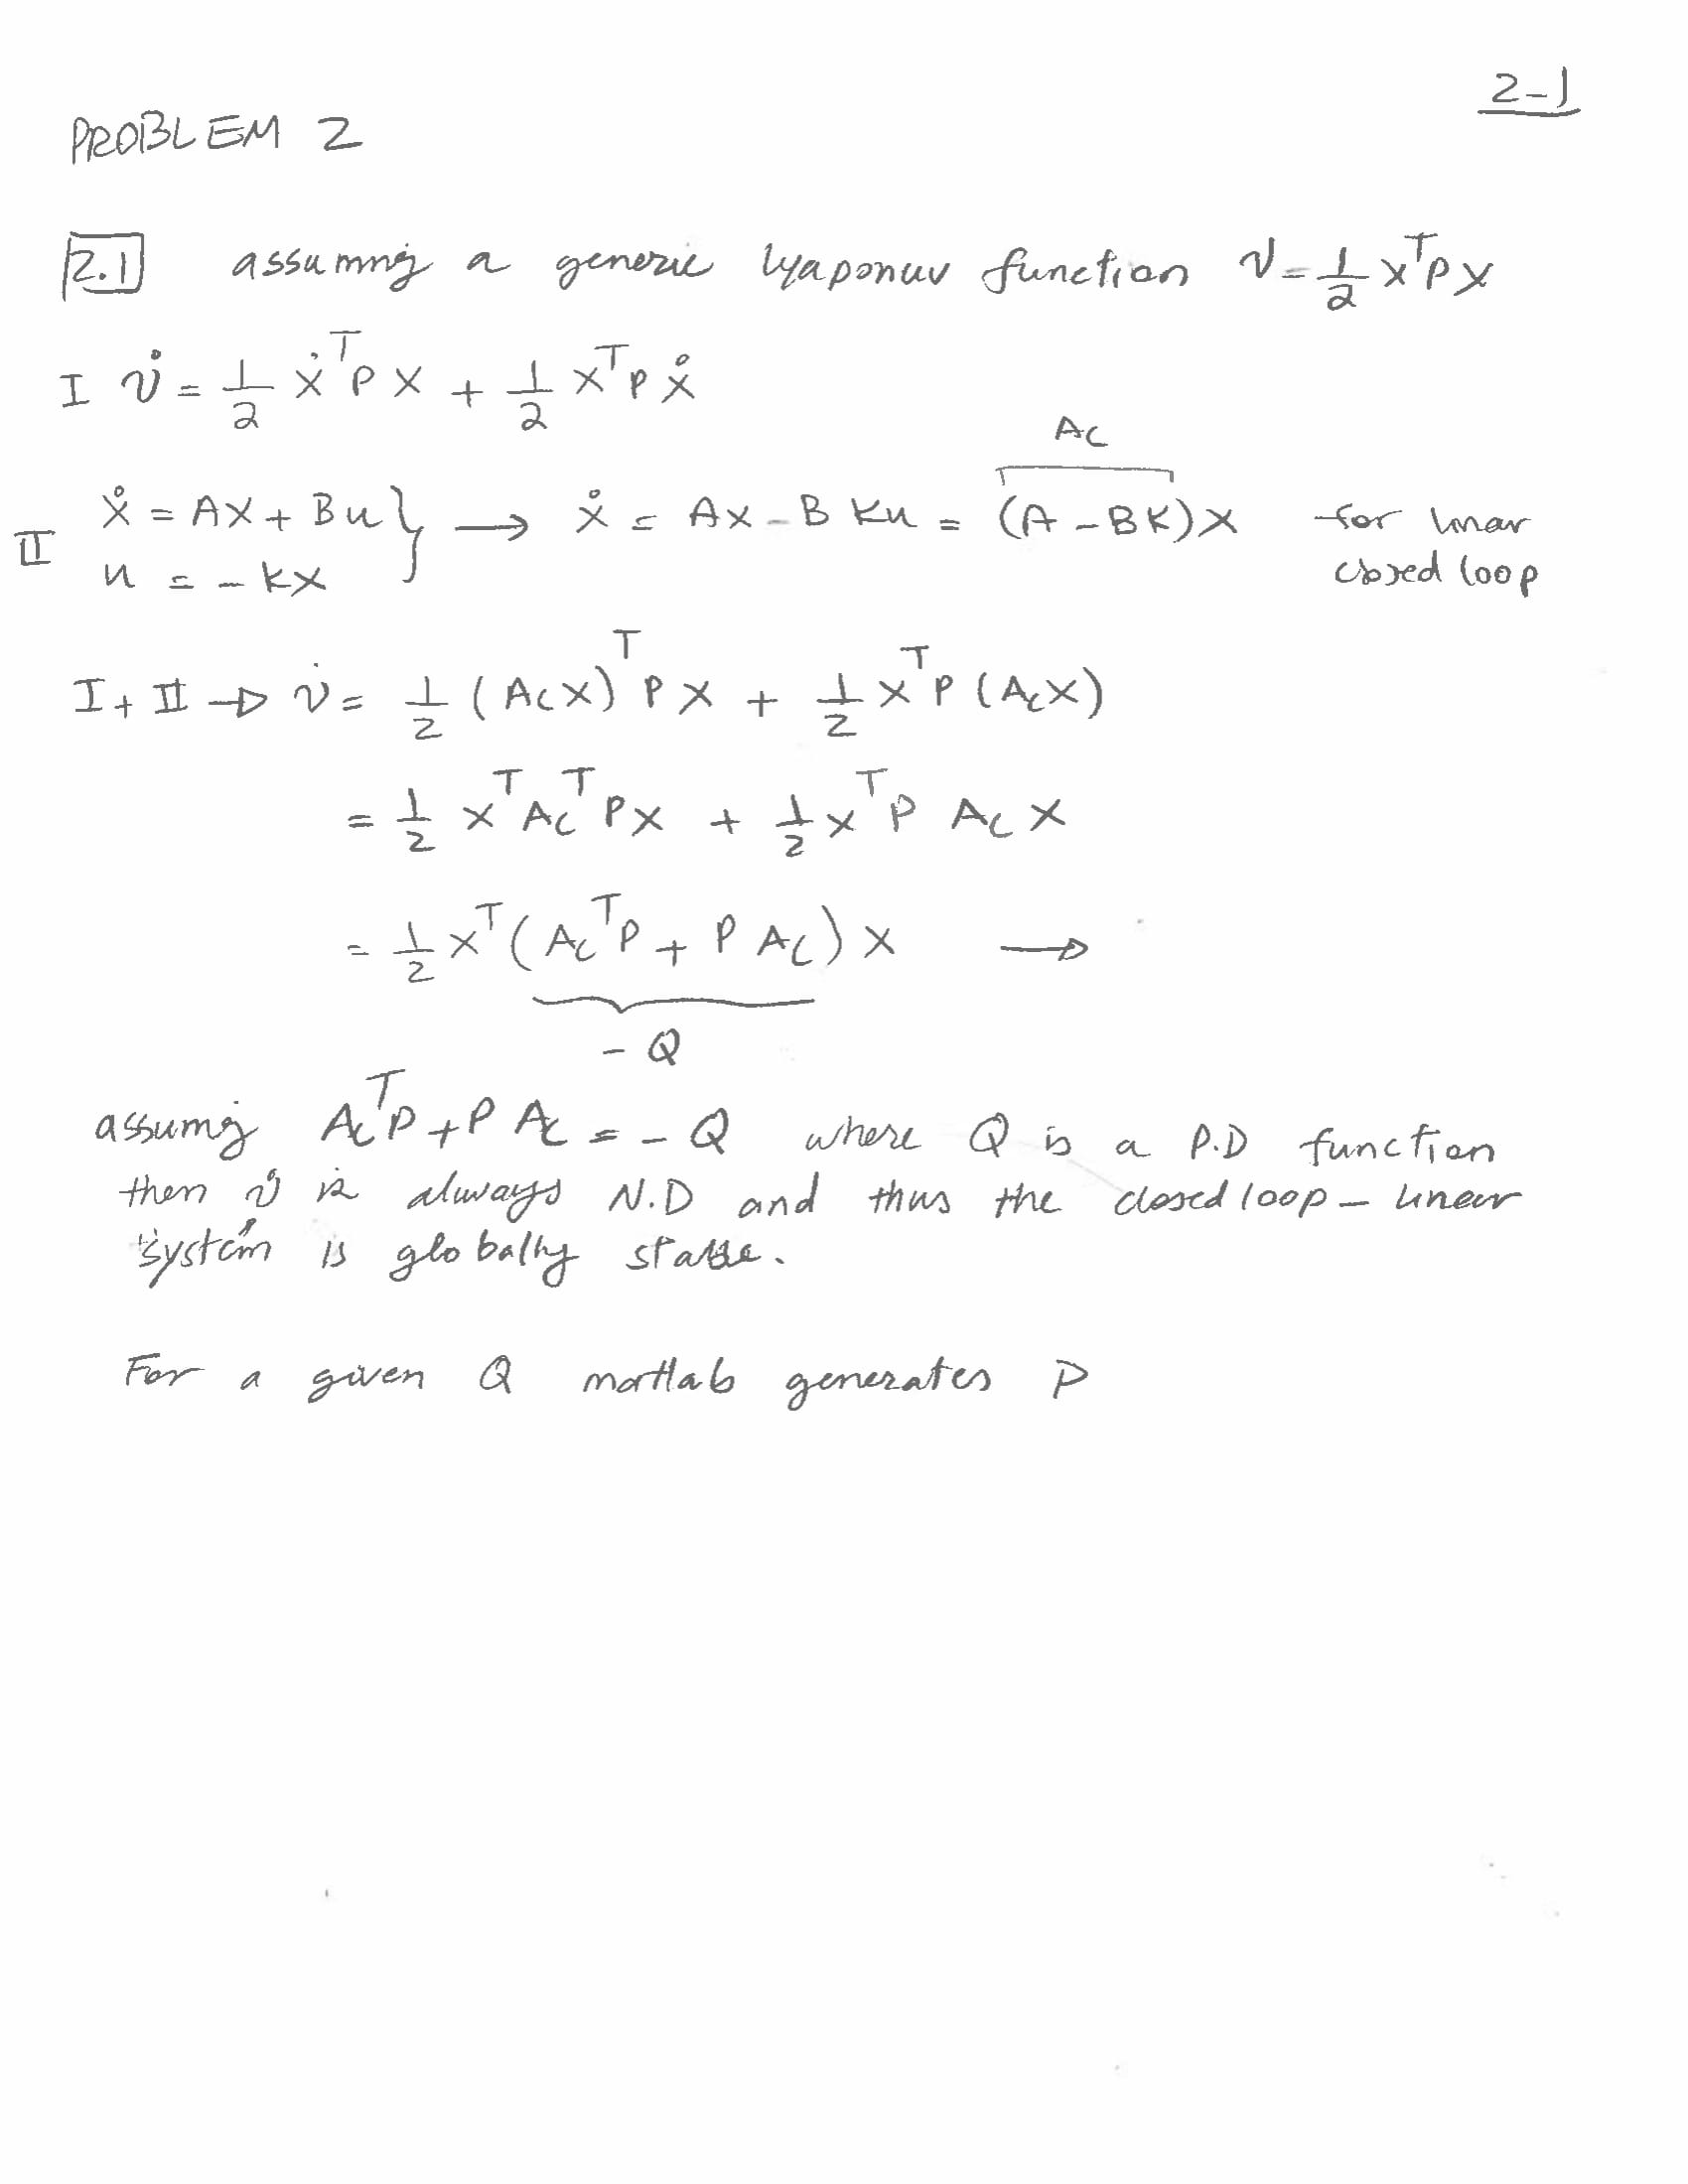 2-1
PROBLEM 2
2.1 assuming a generic lyaponuv function V = 1/2 x^T P x
I v̇ = 1/2 ẋ^T P x + 1/2 x^T P ẋ
Ac
II ẋ = Ax + Bu } → ẋ = Ax - B Ku = (A - BK)x for linear
u = -kx closed loop
I + II → v̇ = 1/2 (Ac x)^T P x + 1/2 x^T P (Ac x)
= 1/2 x^T Ac^T P x + 1/2 x^T P Ac x
= 1/2 x^T (Ac^T P + P Ac) x →
- Q
assuming Ac^T P + P Ac = - Q where Q is a P.D function
then v̇ is always N.D and thus the closed loop - linear
system is globally stable.
For a given Q matlab generates P